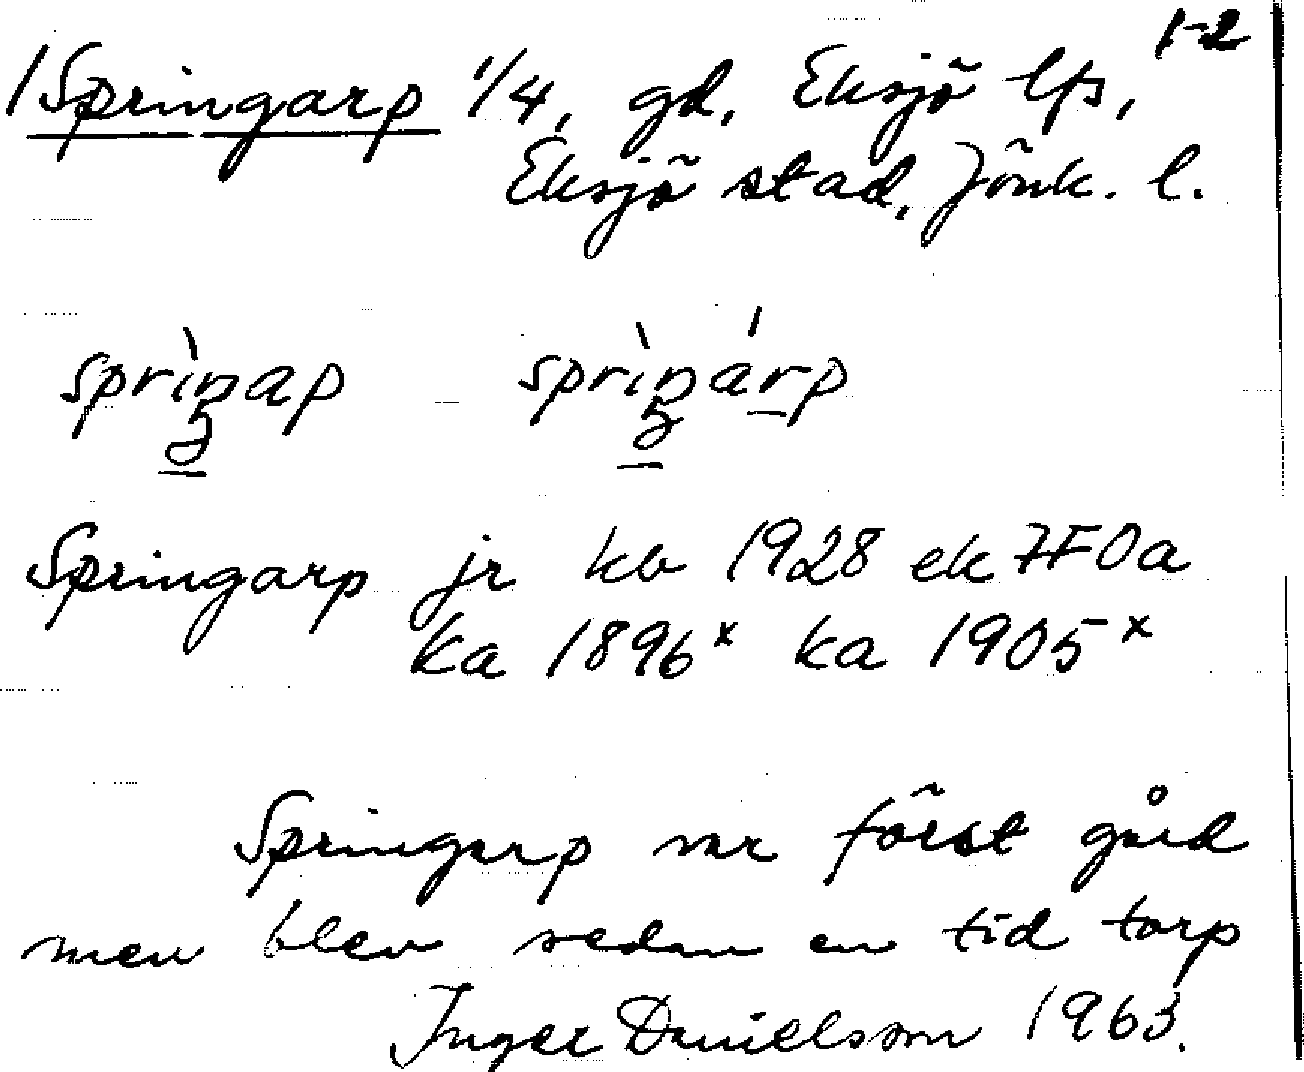 1-2
/Springarp 1/4, gd, Eksjö lfs,
Eksjö stad, Jönk. l.
sprìŋap – sprìŋárp
Springarp jr kb 1928 ek 7F0a
ka 1896ˣ ka 1905ˣ
Springarp var först gård
men blev sedan en tid torp
Inger Danielsson 1963.